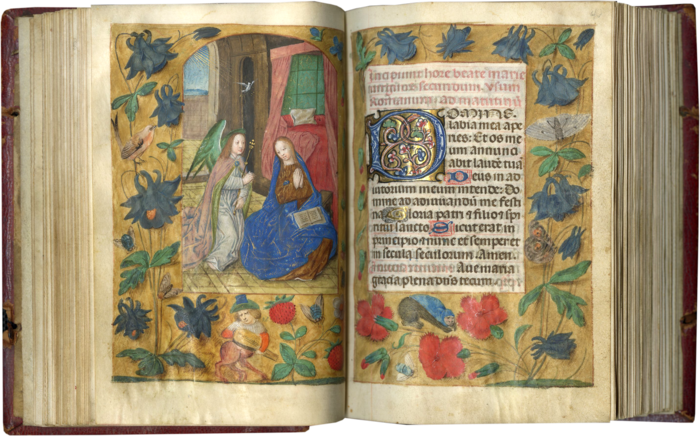 Incipiunt hore beate marie
virginis secundum. Usum
Romanum. ad matutinū
Domine
labia mea ape
ries: Et os me
um annunci
abit laudē tuā
Deus in ad
iutorium meum intende: Do
mine ad adiuuandū me festi
na Gloria patri & filio & spi
ritui sancto Sicut erat in
principio & nunc et semper et
in secula seculorum amen.
Aue maria
gracia plena dn̄s tecum